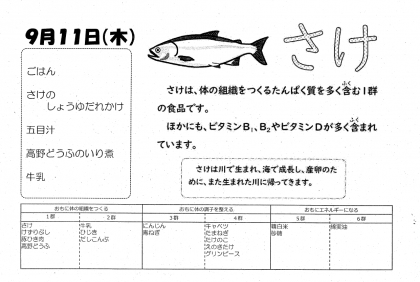 9月11日(木)
さけ
ごはん
さけの
しょうゆだれかけ
五目汁
高野どうふのいり煮
牛乳
さけは、体の組織をつくるたんぱく質を多く含む1群
の食品です。
ほかにも、ビタミンB1、B2やビタミンDが多く含まれ
ています。
さけは川で生まれ、海で成長し、産卵のた
めに、また生まれた川に帰ってきます。
おもに体の組織をつくる おもに体の調子を整える おもにエネルギーになる
1群 2群 3群 4群 5群 6群
さけ 牛乳 にんじん キャベツ 精白米 綿実油
けずりぶし ひじき 高ねぎ たまねぎ 砂糖
豚ひき肉 だしこんぶ たけのこ
高野どうふ えのきたけ
グリンピース